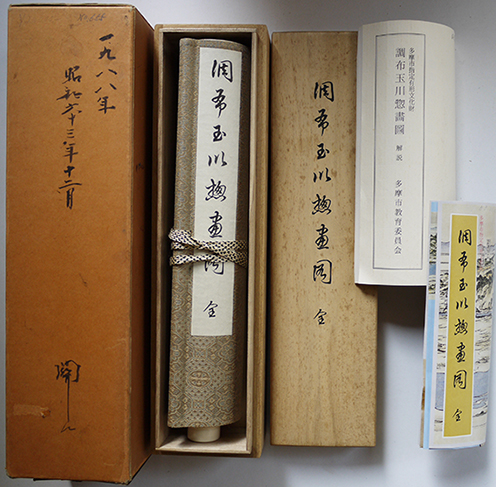 一九八八年
昭和六十三年十二月
調布玉川惣畫圖 全
調布玉川惣畫圖 全
多摩市指定有形文化財
調布玉川惣畫圖
解説
多摩市教育委員会
調布玉川惣畫圖 全